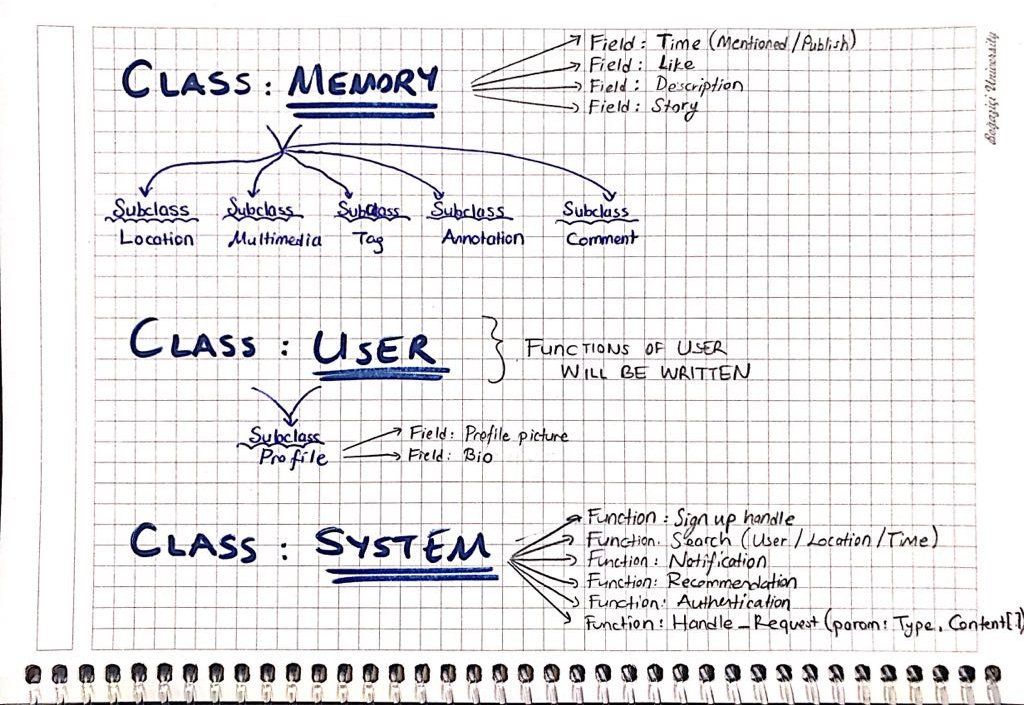 Boğaziçi University
CLASS : MEMORY
Field : Time (Mentioned / Publish)
Field : Like
Field : Description
Field : Story
Subclass Subclass Subclass Subclass Subclass
Location Multimedia Tag Annotation Comment
CLASS : USER
FUNCTIONS OF USER
WILL BE WRITTEN
Subclass
Profile
Field: Profile picture
Field: Bio
CLASS : SYSTEM
Function : Sign up handle
Function. Search (User / Location / Time)
Function : Notification
Function: Recommendation
Function: Authentication
Function : Handle_Request (param: Type, Content[])